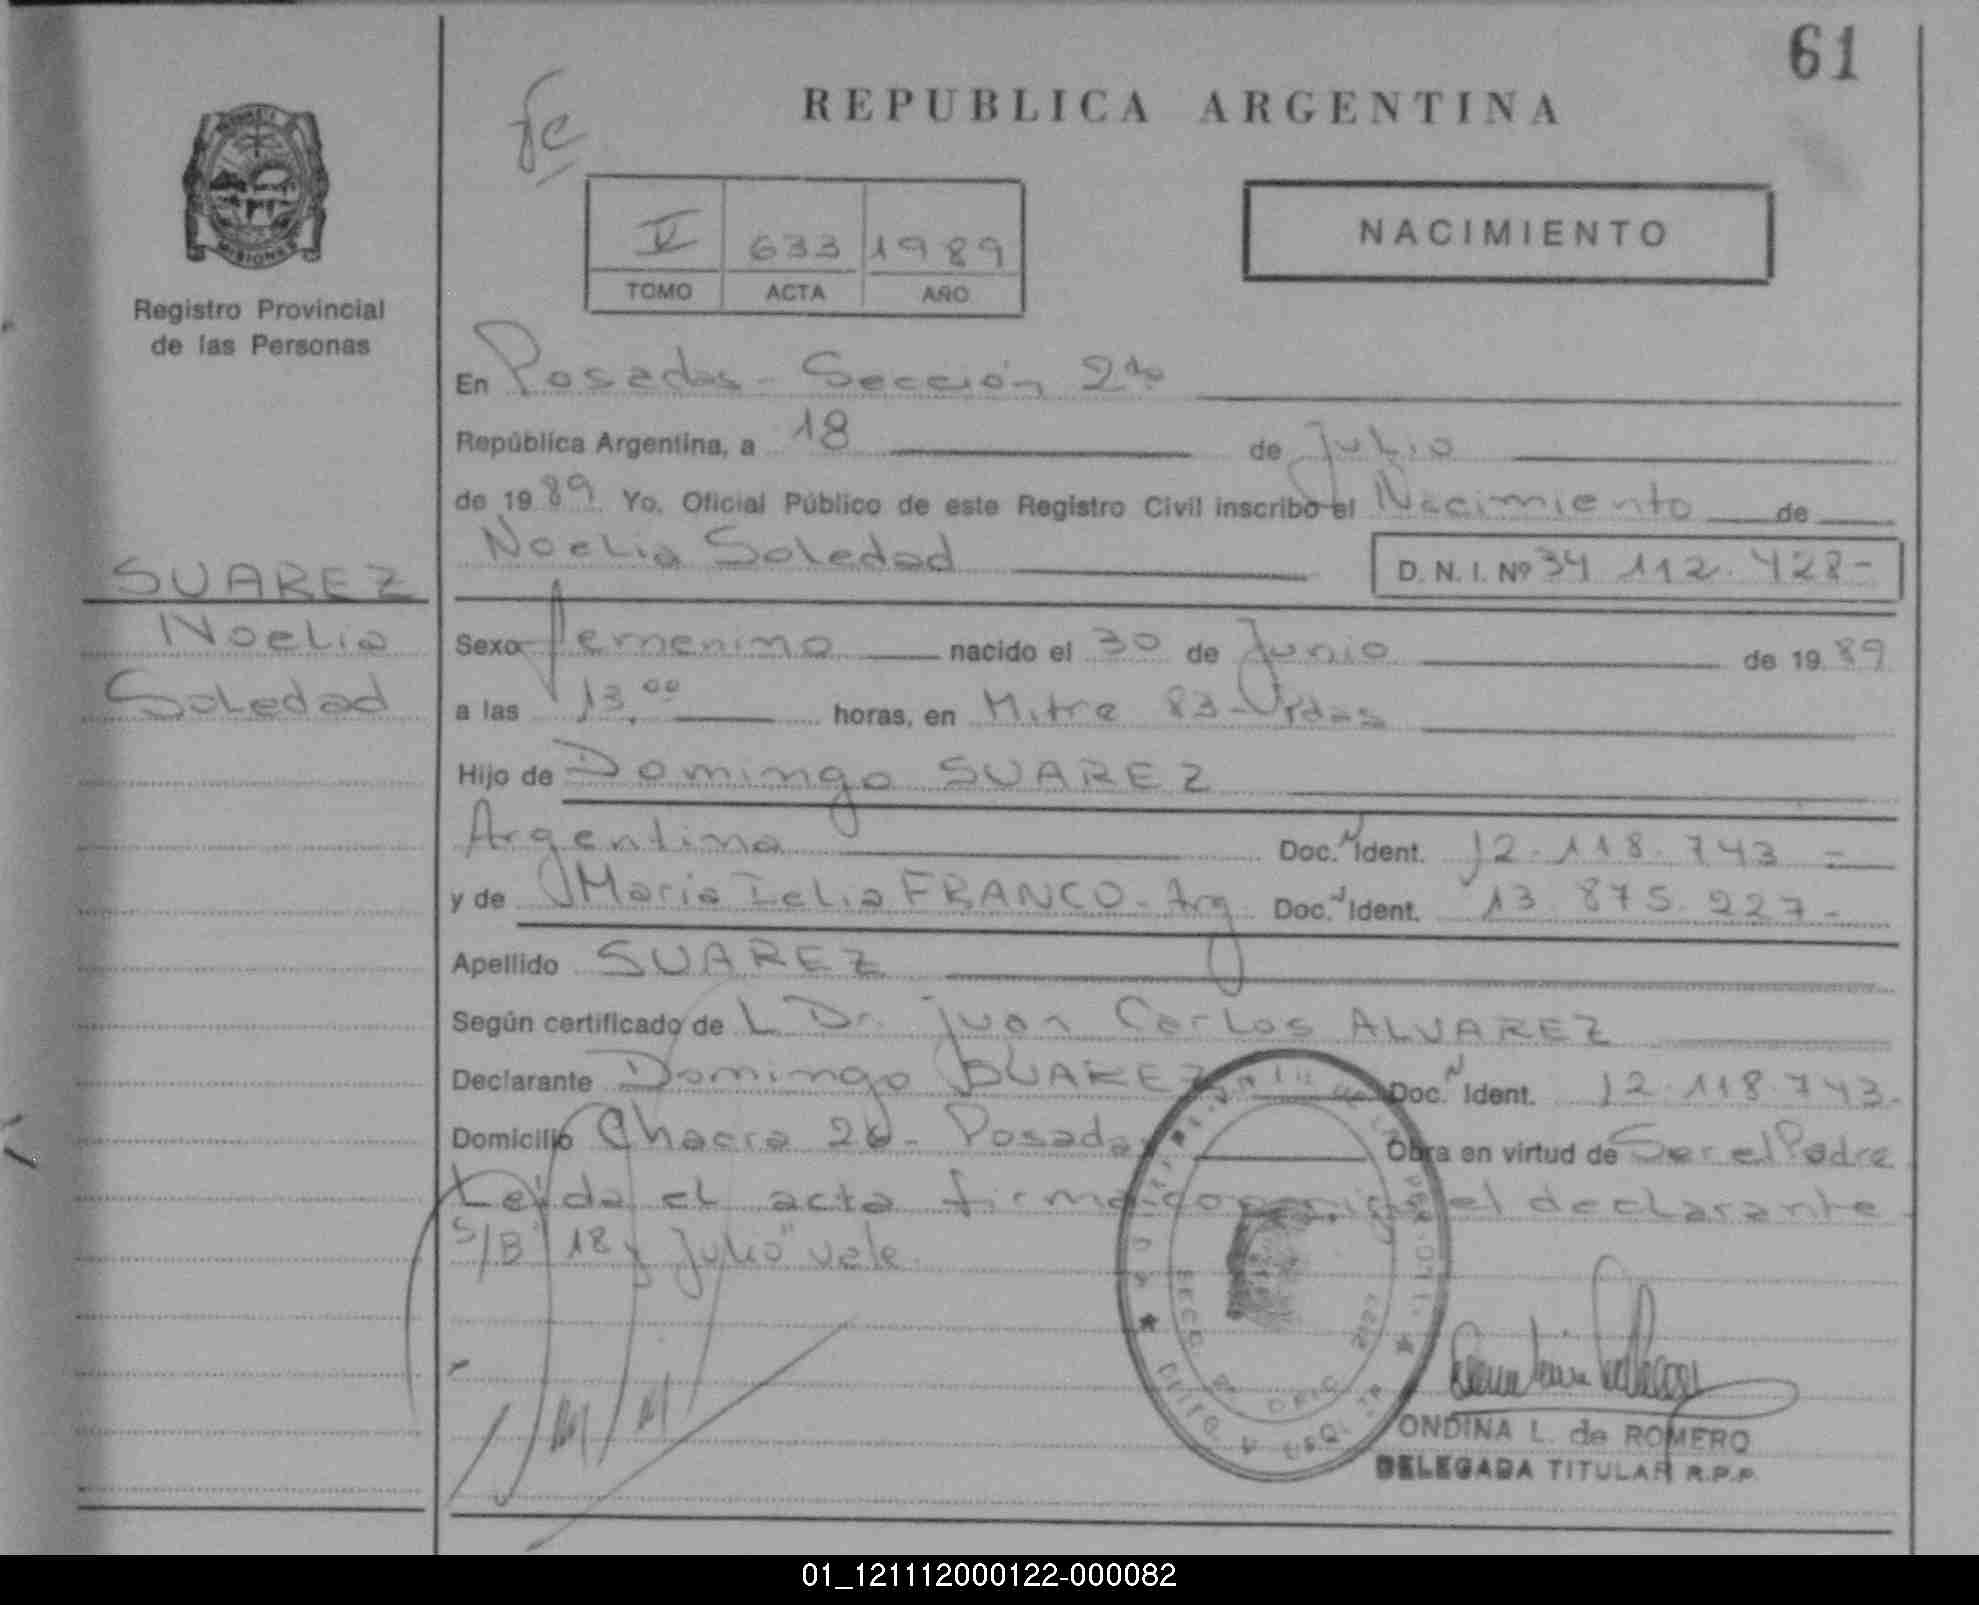 61
REPUBLICA ARGENTINA
NACIMIENTO
633 1989
TOMO ACTA AÑO
MISIONES
Registro Provincial
de las Personas
SUAREZ
Noelia
Soledad
En Posadas - Sección 2da
República Argentina, a 18 de Julio
de 1989. Yo. Oficial Público de este Registro Civil inscribo el Nacimiento de
Noelia Soledad D. N. I. Nº 34 112.428-
Sexo femenino nacido el 30 de Junio de 1989
a las 13.00 horas, en Mitre 83- Pdas
Hijo de Domingo SUAREZ
Argentina Doc. N Ident. 12.118.743 =
y de Maria FRANCO - Arg Doc. Ident. 13.875.227-
Apellido SUAREZ
Según certificado de L Dr. Juan Carlos ALVAREZ
Declarante Domingo SUAREZ Doc. N Ident. 12.118.743-
Domicilio Chacra - Posadas Obra en virtud de Ser el Padre
Leída el acta firma conmigo el declarante
S/B "18 y Julio" vale.
ONDINA L. de ROMERO
DELEGADA TITULAR R.P.P.
01_121112000122-000082